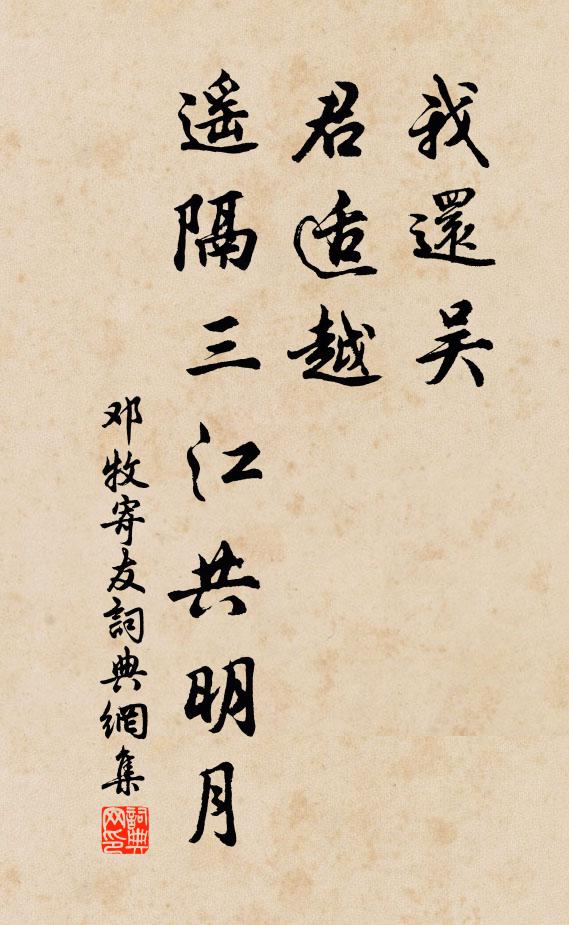 我還吴
君适越
遥隔三江共明月
邓牧寄友詞典網集
詞典
网印